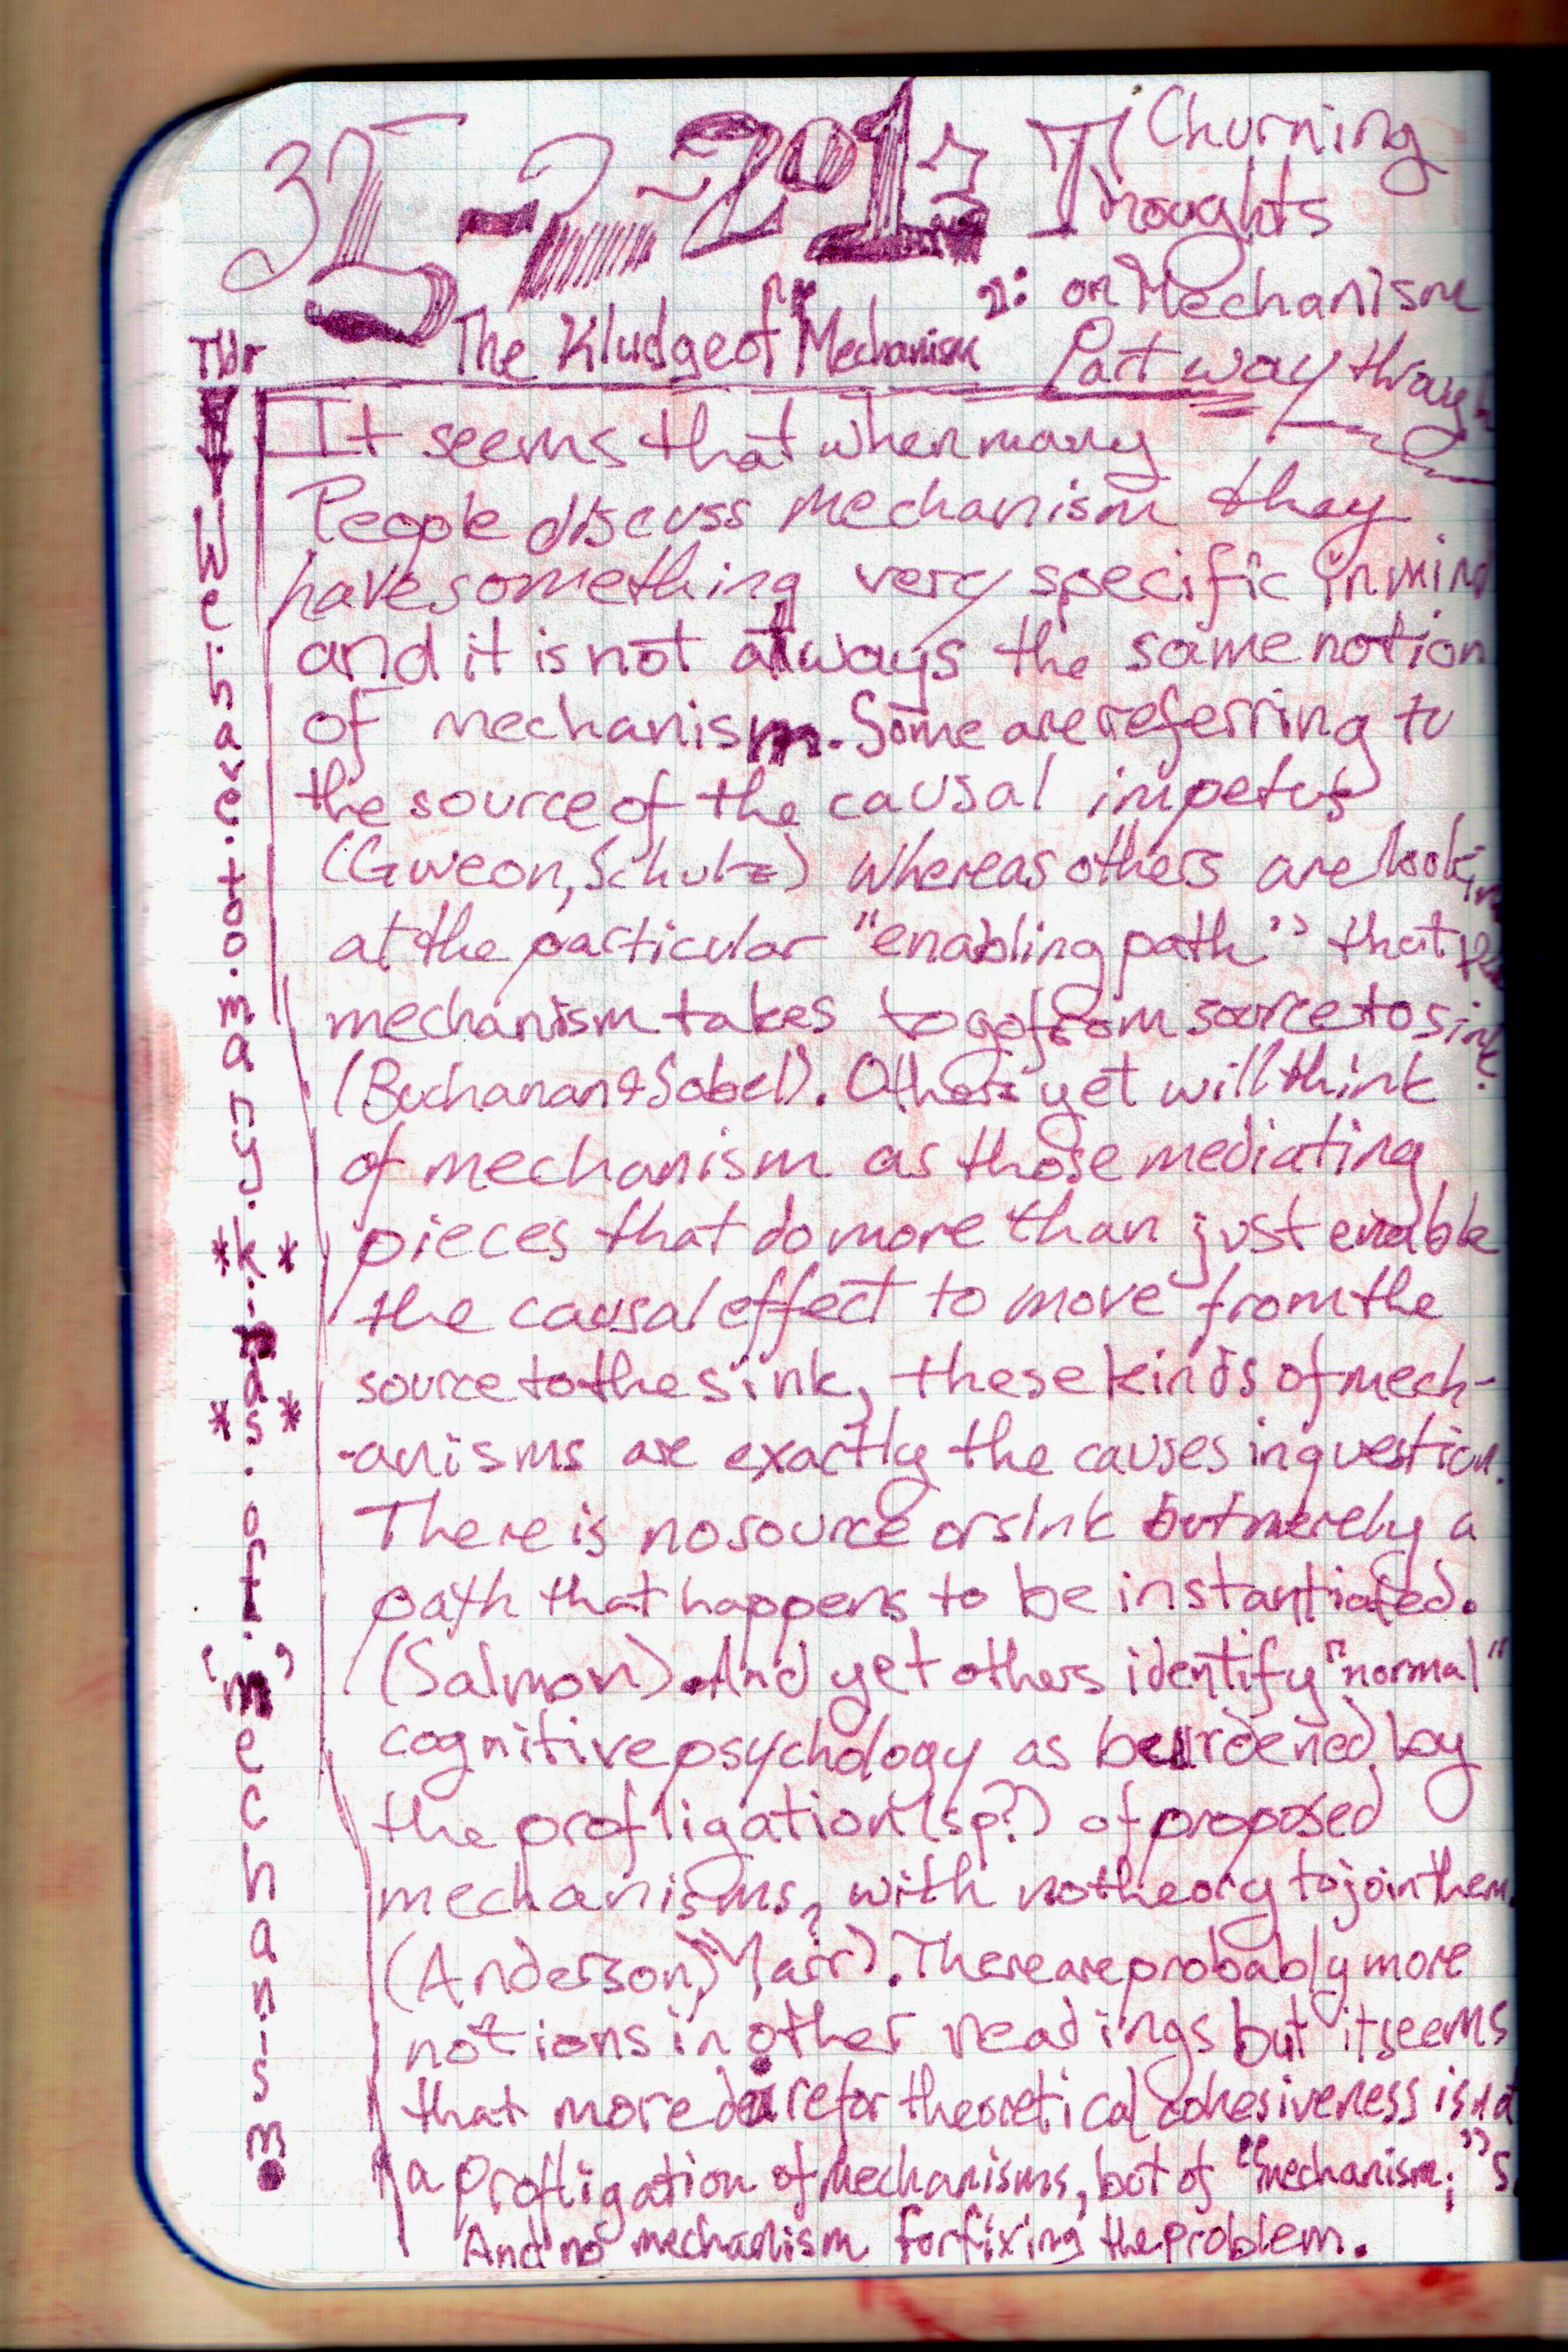 Churning
Thoughts
2: on Mechanism
Part way through
The Kludge of "Mechanism"
It seems that when many
People discuss mechanism they
have something very specific in mind
and it is not always the same notion
of mechanism. Some are referring to
the source of the causal impetus
(Gweon, Schulz) whereas others are looking
at the particular "enabling path" that the
mechanism takes to go from source to sink
(Buchanan & Sobel). Others yet will think
of mechanism as those mediating
pieces that do more than just enable
the causal effect to move from the
source to the sink, these kinds of mech-
-anisms are exactly the causes in question.
There is no source or sink but merely a
path that happens to be instantiated.
(Salmon). And yet others identify "normal"
cognitive psychology as burdened by
the profligation (sp?) of proposed
mechanisms, with no theory to join them.
(Anderson, Marr). There are probably more
notions in other readings but it seems
that more dire for theoretical cohesiveness is not
a profligation of mechanisms, but of "mechanism;"s
And no mechanism for fixing the problem.
Tldr
We.have.too.many.*kinds*.of.'m'echanism.